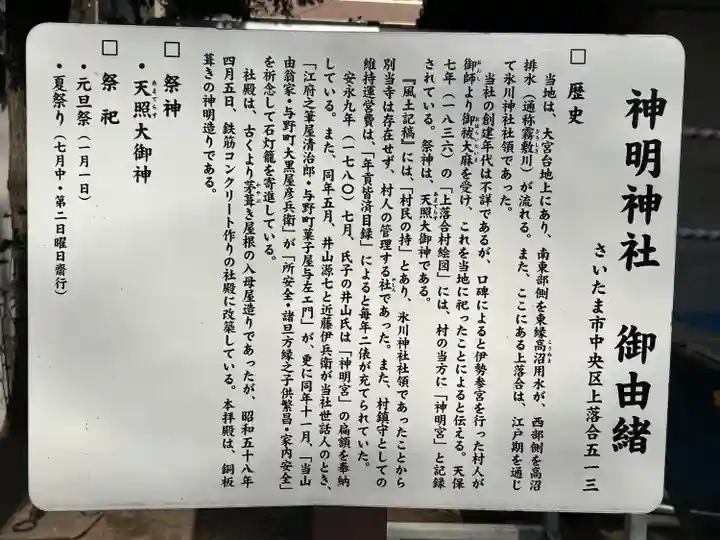 神明神社 御由緒
さいたま市中央区上落合五ー一三
□ 歴史
当地は、大宮台地上にあり、南東部側を東縁高沼用水が、西部側を高沼
排水（通称霧敷川）が流れる。また、ここにある上落合は、江戸期を通じ
て氷川神社社領であった。
当社の創建年代は不詳であるが、口碑によると伊勢参宮を行った村人が
御師より御祓大麻を受け、これを当地に祀ったことによると伝える。天保
七年（一八三六）の「上落合村絵図」には、村の当方に「神明宮」と記録
されている。祭神は、天照大御神である。
『風土記稿』には、「村民の持」とあり、氷川神社社領であったことから
別当寺は存在せず、村人の管理する社であった。また、村鎮守としての
維持運営費は、「年貢皆済目録」によると毎年二俵が充てられていた。
安永九年（一七八〇）七月、氏子の井山氏は「神明宮」の扁額を奉納
している。また、同年五月、井山源七と近藤伊兵衛が当社世話人のとき、
「江府之筆屋清治郎・与野町菓子屋与左エ門」が、更に同年十一月、「当山
由翁家・与野町大黒屋彦兵衛」が「所安全・諸旦方縁之子供繁昌・家内安全」
を祈念して石灯籠を寄進している。
社殿は、古くより茅葺き屋根の入母屋造りであったが、昭和五十八年
四月五日、鉄筋コンクリート作りの社殿に改築している。本拝殿は、銅板
葺きの神明造りである。
□ 祭神
・天照大御神
□ 祭祀
・元旦祭（一月一日）
・夏祭り（七月中・第二日曜日斎行）